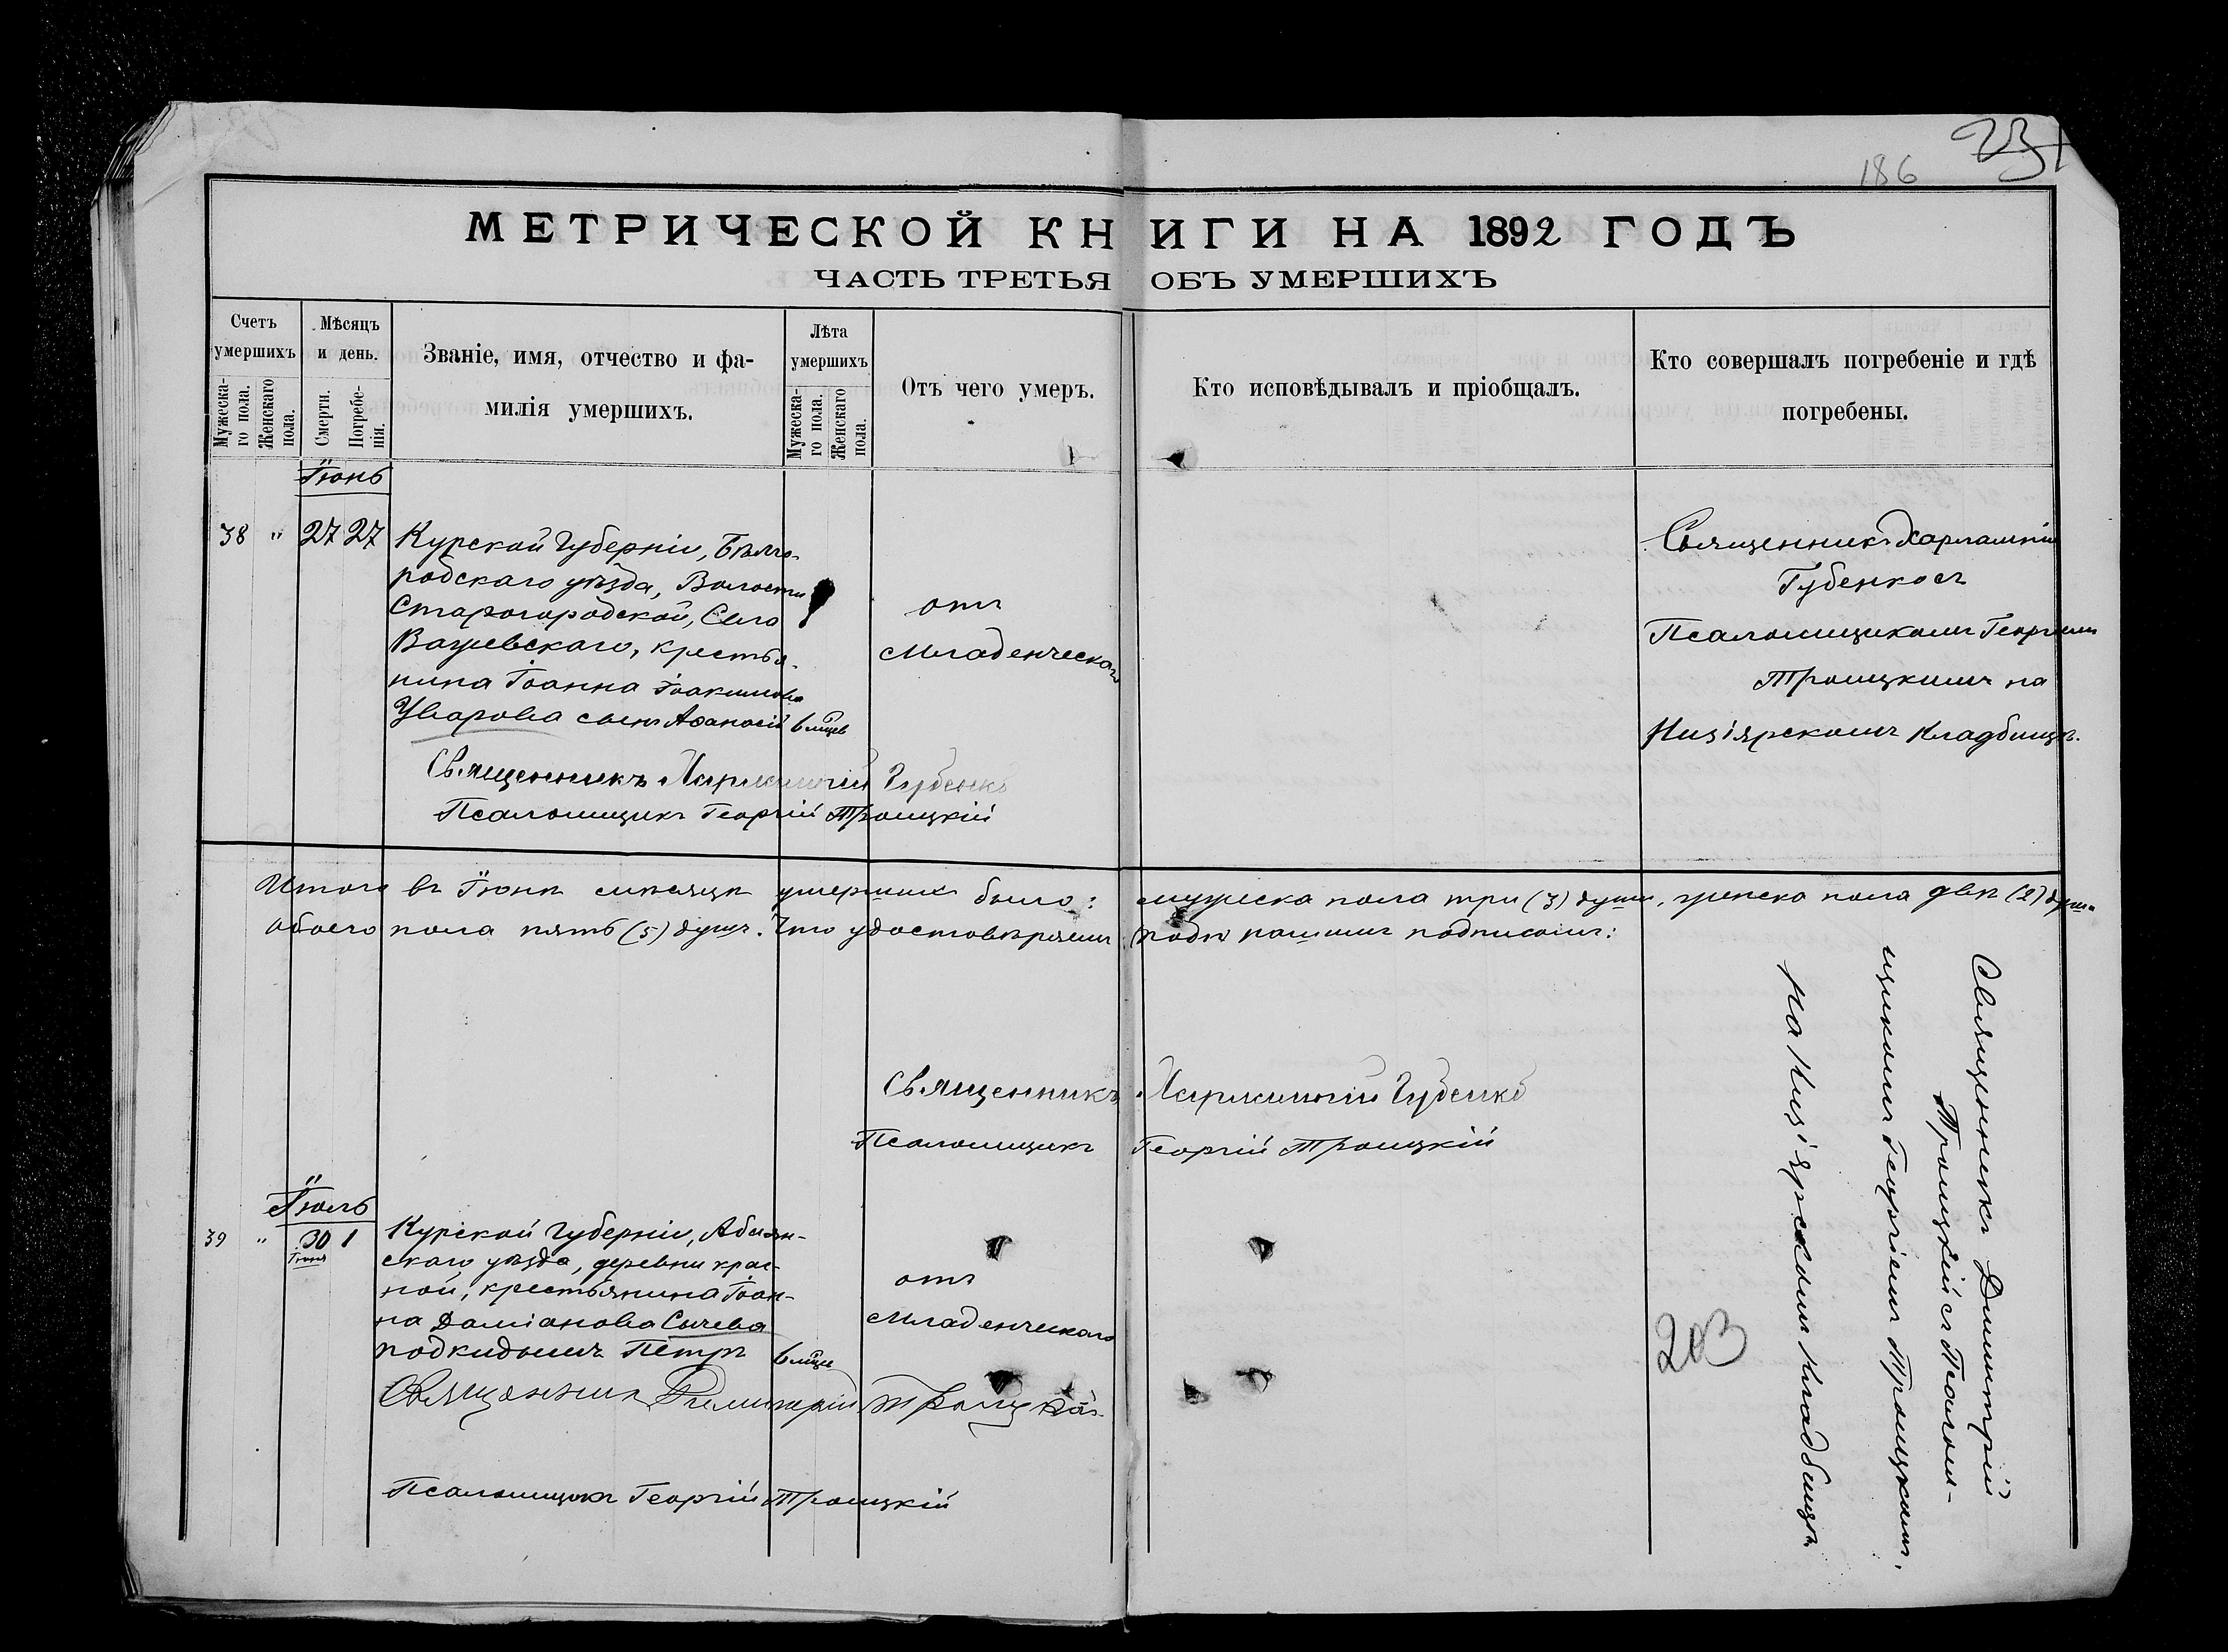 186
231
МЕТРИЧЕСКОЙ КНИГИ НА 1892 ГОДЪ
ЧАСТЬ ТРЕТЬЯ ОБЪ УМЕРШИХЪ
Счетъ умершихъ
Мужеска-го пола.
Женскаго пола.
Мѣсяцъ и день.
Смерти.
Погребе-нія.
Званіе, имя, отчество и фа-
милія умершихъ.
Лѣта умершихъ
Мужеска-го пола.
Женскаго пола.
Отъ чего умеръ.
Кто исповѣдывалъ и пріобщалъ.
Кто совершалъ погребеніе и гдѣ
погребены.
Іюнь
38 " 27 27
Курской Губерніи, Бѣлго-
родскаго уѣзда, Волости
Старогородской, Села
крестья-
нина Іоанна Іоакимова
Уварова сынъ Аѳанасій
6 мцев
отъ
Младенческаго
Священникъ Харлампій
Губенковъ
Псаломщикомъ Георгіемъ
Троицкимъ на
Кизіярскомъ Кладбищѣ.
Священникъ Харлампій Губенко
Псаломщикъ Георгій Троицкій
Итого въ Іюнѣ мѣсяцѣ умершихъ было: мужеска пола три (3) души, женска пола двѣ (2) души
обоего пола пять (5) душъ. Что удостовѣряемъ подъ нашими подписомъ:
Священникъ Харлампій Губенко
Псаломщикъ Георгій Троицкій
Іюль
39 " 30 1
Іюня
Курской Губерніи, Абоян-
скаго уѣзда, деревни крас-
ной, крестьянина Іоан-
на Даміанова Сычева
подкидышъ Петръ
6 мцев
отъ
Младенческаго
Священникъ Димитрій
Троицкій съ Псалом-
щикомъ Георгіемъ Троицкимъ,
на Кизіярскомъ Кладбищѣ.
203
Священникъ Димитрій Троицкій
Псаломщикъ Георгій Троицкій